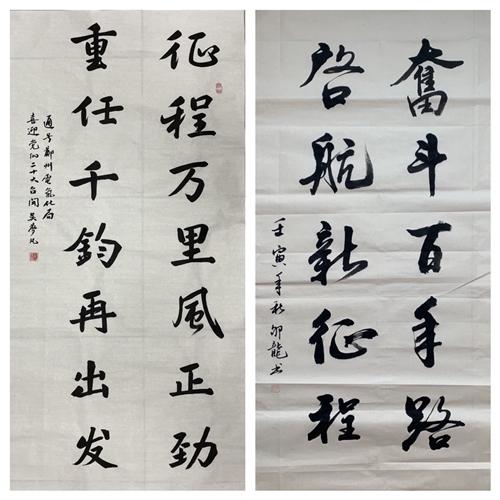 征程万里风正劲
重任千钧再出发
通号鄭州電氣化局
喜迎党的二十大召開 吴
奮斗百年路
啟航新征程
壬寅年秋 龍书